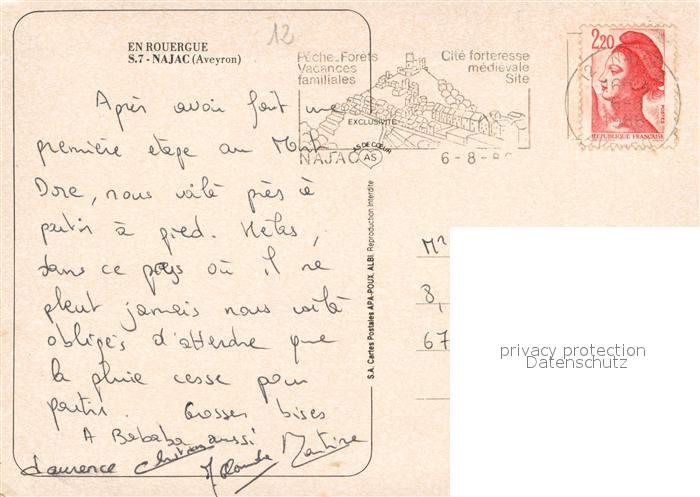 EN ROUERGUE
S.7 - NAJAC (Aveyron)
12
Après avoir fait une
première étape au Mont
Dore, nous voilà près à
partir à pied. Hélas,
dans ce pays où il ne
pleut jamais nous voilà
obligés d'attendre que
la pluie cesse pour
partir. Grosses bises
A Bababa aussi
Laurence Martine
Pêche_Forêts
Vacances
familiales
Cité forteresse
médiévale
Site
EXCLUSIVITÉ
AS DE CŒUR
AS
NAJAC
6-8-8
S.A. Cartes Postales APA-POUX, ALBI. Reproduction Interdite
2,20
POSTES
REPUBLIQUE FRANÇAISE
Mr
8,
67
privacy protection
Datenschutz